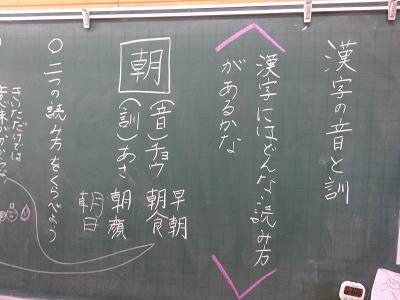 漢字の音と訓
漢字にはどんな読み方
があるかな
朝
(音)チョウ 早朝 朝食
(訓)あさ 朝顔 朝日
○二つの読み方をくらべよう
きいただけでは